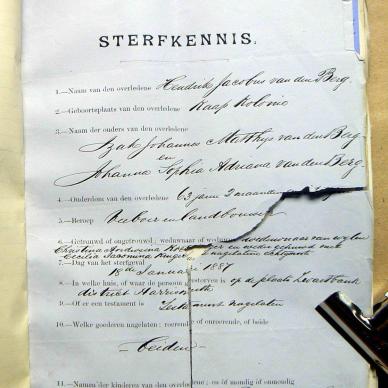 STERFKENNIS.
1.—Naam van den overledene Hendrik Jacobus van den Berg.
2.—Geboorteplaats van den overledene Kaap Kolonie
3.—Naam der ouders van den overledene
Izak Johannes Matthys van den Berg
en
Johanna Sophia Adriana van den Berg.
4.—Ouderdom van den overledene 63 jaar 2 maanden
5.—Beroep Veeboer en landbouwer
6.—Getrouwd of ongetrouwd; weduwnaar of weduwe
Christina
Cecilia Jacomina nagelaten echtgenote
7.—Dag van het sterfgeval
18de Januari 1887
8.—In welke huis, of waar de persoon gestorven is op de plaats Zwartbank
district Harrismith
9.—Of er een testament is Testament nagelaten
10.—Welke goederen nagelaten; roerende of onroerende, of beide
Beiden
11.—Namen der kinderen van den overledene; en óf mondig óf onmondig